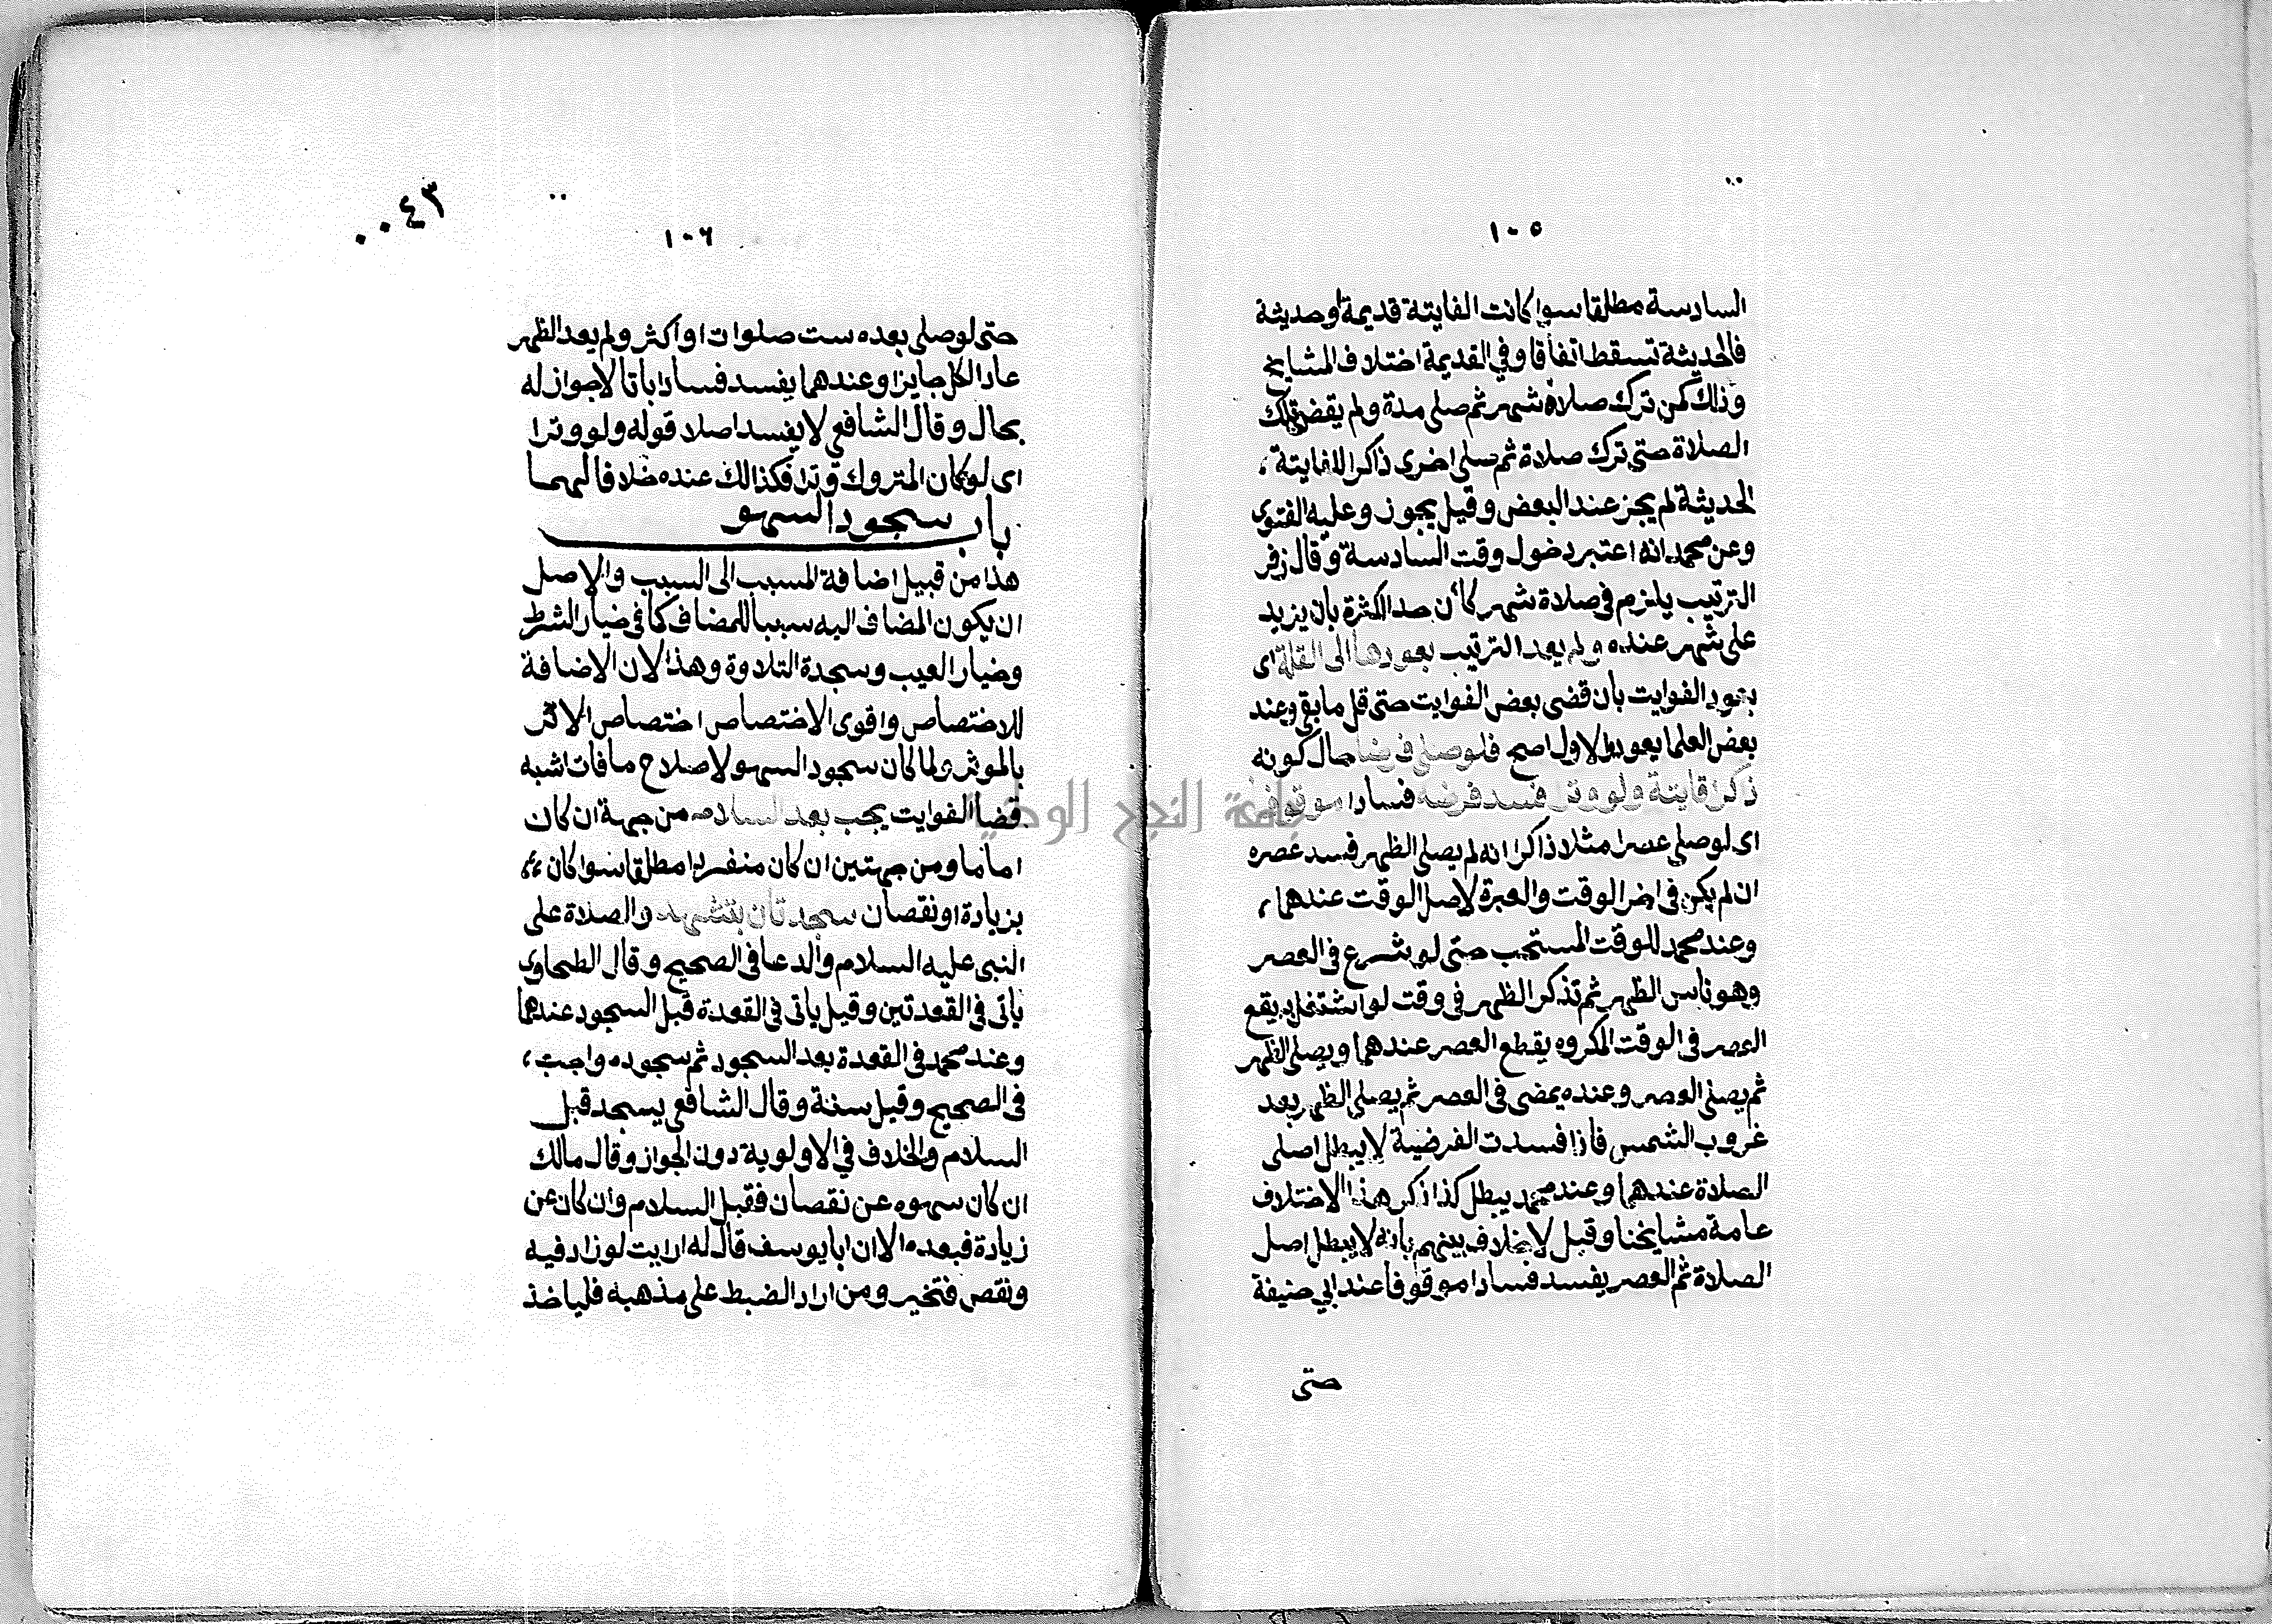 ١٠٥
السادسة مطلقا سوا كانت الفايتة قديمة او حديثة
فالحديثة تسقط اتفاقا وفي القديمة اختلاف المشايخ
وذلك كمن ترك صلاة شهر ثم صلى مدة ولم يقض تلك
الصلاة حتى ترك صلاة ثم صلى اخرى ذاكرا للفايتة
الحديثة لم يجز عند البعض وقيل يجوز وعليه الفتوى
وعن محمد انه اعتبر دخول وقت السادسة وقال زفر
الترتيب يلزم في صلاة شهر كأن حد الكثرة بان يزيد
على شهر عنده ولم يعد الترتيب بعودها الى القلة اى
بعود الفوايت بأن قضى بعض الفوايت حتى قل ما بقى وعند
بعض العلما يعود والاول اصح فلو صلى فرضا حال كونه
ذاكرا فايتة ولو وترا فسد فرضه فسادا موقوفا
اى لو صلى عصرا مثلا ذاكرا انه لم يصلى الظهر فسد عصره
ان لم يكن في اخر الوقت والعبرة لاصل الوقت عندهما،
وعند محمد للوقت المستحب حتى لو شرع في العصر
وهو ناس الظهر ثم تذكر الظهر في وقت لو اشتغل به يقع
العصر في الوقت المكروه يقطع العصر عندهما ويصلى الظهر
ثم يصلى العصر وعنده يمضى في العصر ثم يصلى الظهر بعد
غروب الشمس فاذا فسدت الفرضية لا يبطل اصلى
الصلاة عندهما وعند محمد يبطل كذا ذكر هذا الاختلاف
عامة مشايخنا وقيل لا خلاف بينهم بانه لا يبطل اصل
الصلاة ثم العصر يفسد فسادا موقوفا عند ابي حنيفة
حتى
٠٠٤٣
١٠٦
حتى لو صلى بعده ست صلوات او اكثر ولم يعد الظهر
عاد الكل جايزا وعندهما يفسد فسادا باتا لا جواز له
بحال وقال الشافعى لا يفسد اصلا قوله ولو وترا
اى لو كان المتروك وترا فكذالك عنده خلافا لهما
باب سجود السهو
هذا من قبيل اضافة المسبب الى السبب والاصل
ان يكون المضاف اليه سببا للمضاف كما في خيار الشرط
وخيار العيب وسجدة التلاوة وهذا لان الاضافة
للاختصاص واقوى الاختصاص اختصاص الاثر
بالموثر ولما كان سجود السهو لاصلاح ما فات اشبه
قضا الفوايت يجب بعد السلام من جهة ان كان
اماما ومن جهتين ان كان منفردا مطلقا سوا كان
بزيادة او نقصان سجدتان بتشهد والصلاة على
النبى عليه السلام والدعا في الصحيح وقال الطحاوى
يأتى في القعدتين وقيل ياتى في القعدة قبل السجود عندهما
وعند محمد في القعدة بعد السجود ثم سجوده واجب،
في الصحيح وقيل سنة وقال الشافعى يسجد قبل
السلام والخلاف في الاولوية دون الجواز وقال مالك
ان كان سهوه عن نقصان فقبل السلام وان كان عن
زيادة فبعده الا ان ابا يوسف قال له ارايت لو زاد فيه
ونقص فتحير ومن اراد الضبط على مذهبه فلياخذ
جامعة النجاح الوطنية